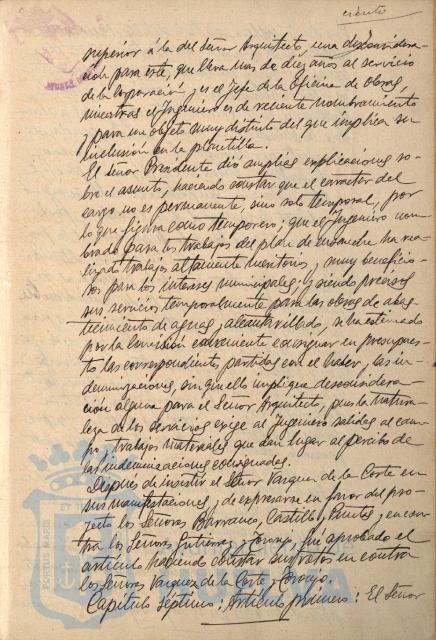 ciento
superior á la del Señor Arquitecto, una desconsidera-
ción para éste, que lleva mas de diez años al servicio
de la Corporación y es el Jefe de la Oficina de Obras,
mientras el Ingeniero es de reciente nombramiento
y para un objeto muy distinto del que implica su
inclusión en la plantilla.
El señor Presidente dió amplias explicaciones so-
bre el asunto, haciendo constar que el caracter del
cargo no es permanente, sino solo temporal, por
lo que figura como temporero; que el Ingeniero nom-
brado para los trabajos del plan de ensanche ha rea-
lizado trabajos altamente meritorios y muy beneficio-
sos para los intereses municipales, y siendo precisos
sus servicios temporalmente para las obras de abas-
tecimiento de aguas y alcantarillado, se ha estimado
por la Comisión conveniente consignar en presupues-
to las correspondientes partidas con el haber y las in-
demnizaciones, sin que ello implique desconsidera-
ción alguna para el Señor Arquitecto, pues la natura-
leza de los servicios exige al Ingeniero salidas al cam-
po y trabajos materiales que dan lugar al percibo de
las indemnizaciones consignadas.
Después de insistir el Señor Vazquez de la Corte en
sus manifestaciones, y de expresarse en favor del pro-
yecto los Señores Barranco, Castillo y Puntes, y en con-
tra los Señores Gutiérrez y Borrego, fue aprobado el
artículo haciendo constar sus votos en contra
los Señores Vazquez de la Corte y Borrego.
Capítulo séptimo: Artículo primero: El Señor
PORTUS MARIS